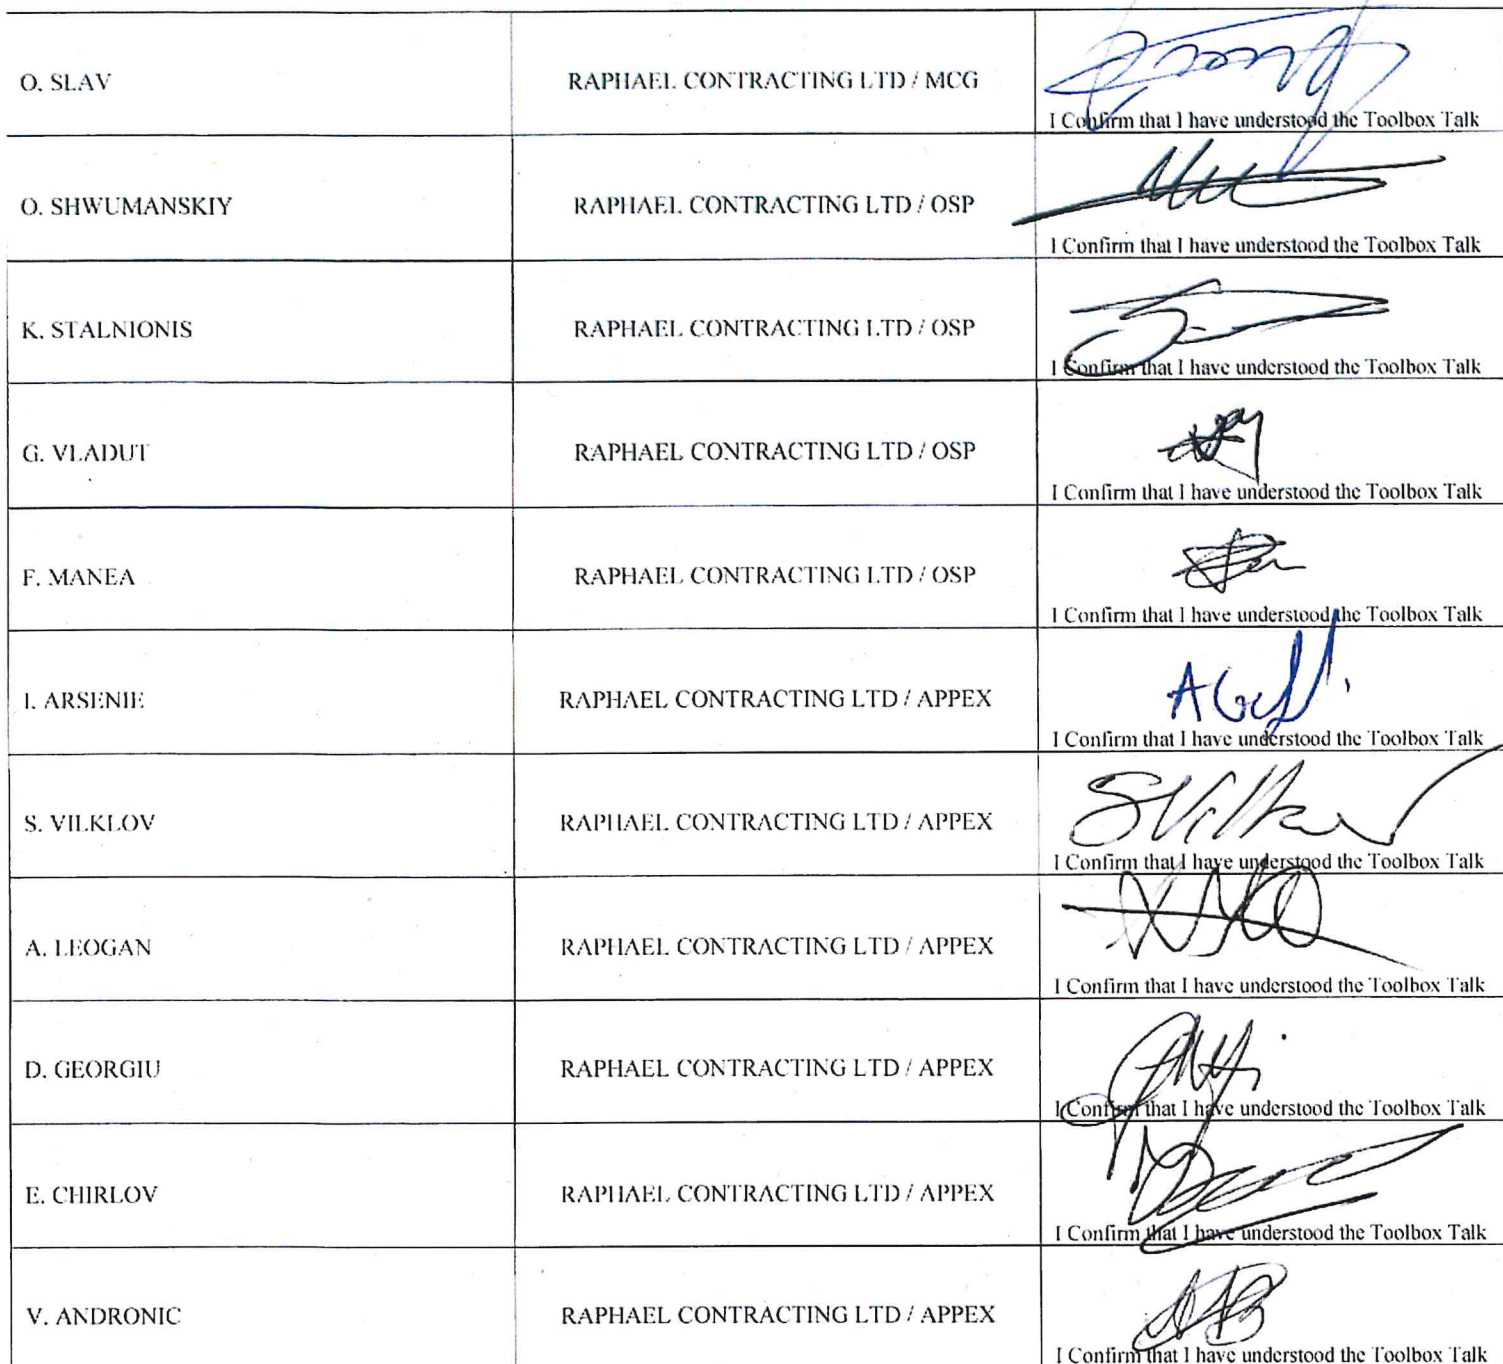 O. SLAV
RAPHAEL CONTRACTING LTD / MCG
I Confirm that I have understood the Toolbox Talk
O. SHWUMANSKIY
RAPHAEL CONTRACTING LTD / OSP
I Confirm that I have understood the Toolbox Talk
K. STALNIONIS
RAPHAEL CONTRACTING LTD / OSP
I Confirm that I have understood the Toolbox Talk
G. VLADUT
RAPHAEL CONTRACTING LTD / OSP
I Confirm that I have understood the Toolbox Talk
F. MANEA
RAPHAEL CONTRACTING LTD / OSP
I Confirm that I have understood the Toolbox Talk
I. ARSENIE
RAPHAEL CONTRACTING LTD / APPEX
I Confirm that I have understood the Toolbox Talk
S. VILKLOV
RAPHAEL CONTRACTING LTD / APPEX
I Confirm that I have understood the Toolbox Talk
A. LEOGAN
RAPHAEL CONTRACTING LTD / APPEX
I Confirm that I have understood the Toolbox Talk
D. GEORGIU
RAPHAEL CONTRACTING LTD / APPEX
I Confirm that I have understood the Toolbox Talk
E. CHIRLOV
RAPHAEL CONTRACTING LTD / APPEX
I Confirm that I have understood the Toolbox Talk
V. ANDRONIC
RAPHAEL CONTRACTING LTD / APPEX
I Confirm that I have understood the Toolbox Talk